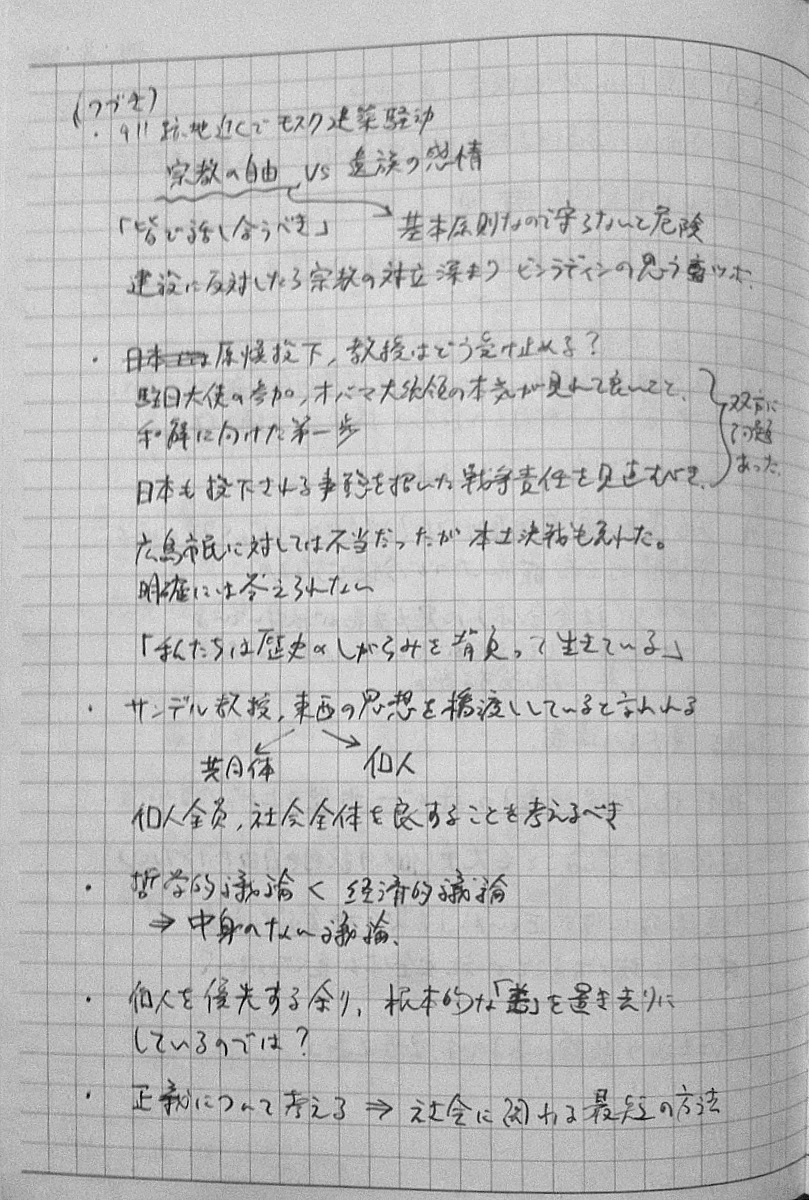 (つづき)
・911跡地近くでモスク建築騒動
宗教の自由 vs 遺族の感情
「皆で話し合うべき」 基本原則なので守らないと危険
建設に反対したら宗教の対立深まり ビンラディンの思うツボ.
・日本 原爆投下, 教授はどう受け止める?
駐日大使の参加, オバマ大統領の本気が見れて良いこと、
和解に向けた第一歩
日本も投下される事態を招いた戦争責任を見直すべき、
双方に
問題
あった.
広島市民に対しては不当だったが本土決戦も免れた。
明確には答えられない
「私たちは歴史のしがらみを背負って生きている」
・サンデル教授, 東西の思想を橋渡ししていると言われる
共同体 個人
個人全員, 社会全体を良することを考えるべき
・哲学的議論 < 経済的議論
⇒ 中身のない議論、
・個人を優先する余り, 根本的な「善」を置き去りに
しているのでは?
・正義について考える ⇒ 社会に関わる最短の方法